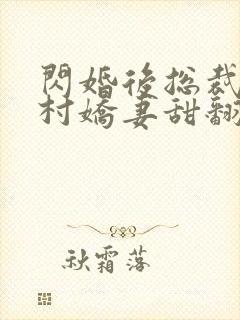 閃婚後總裁
村嬌妻甜翻
秋霜落